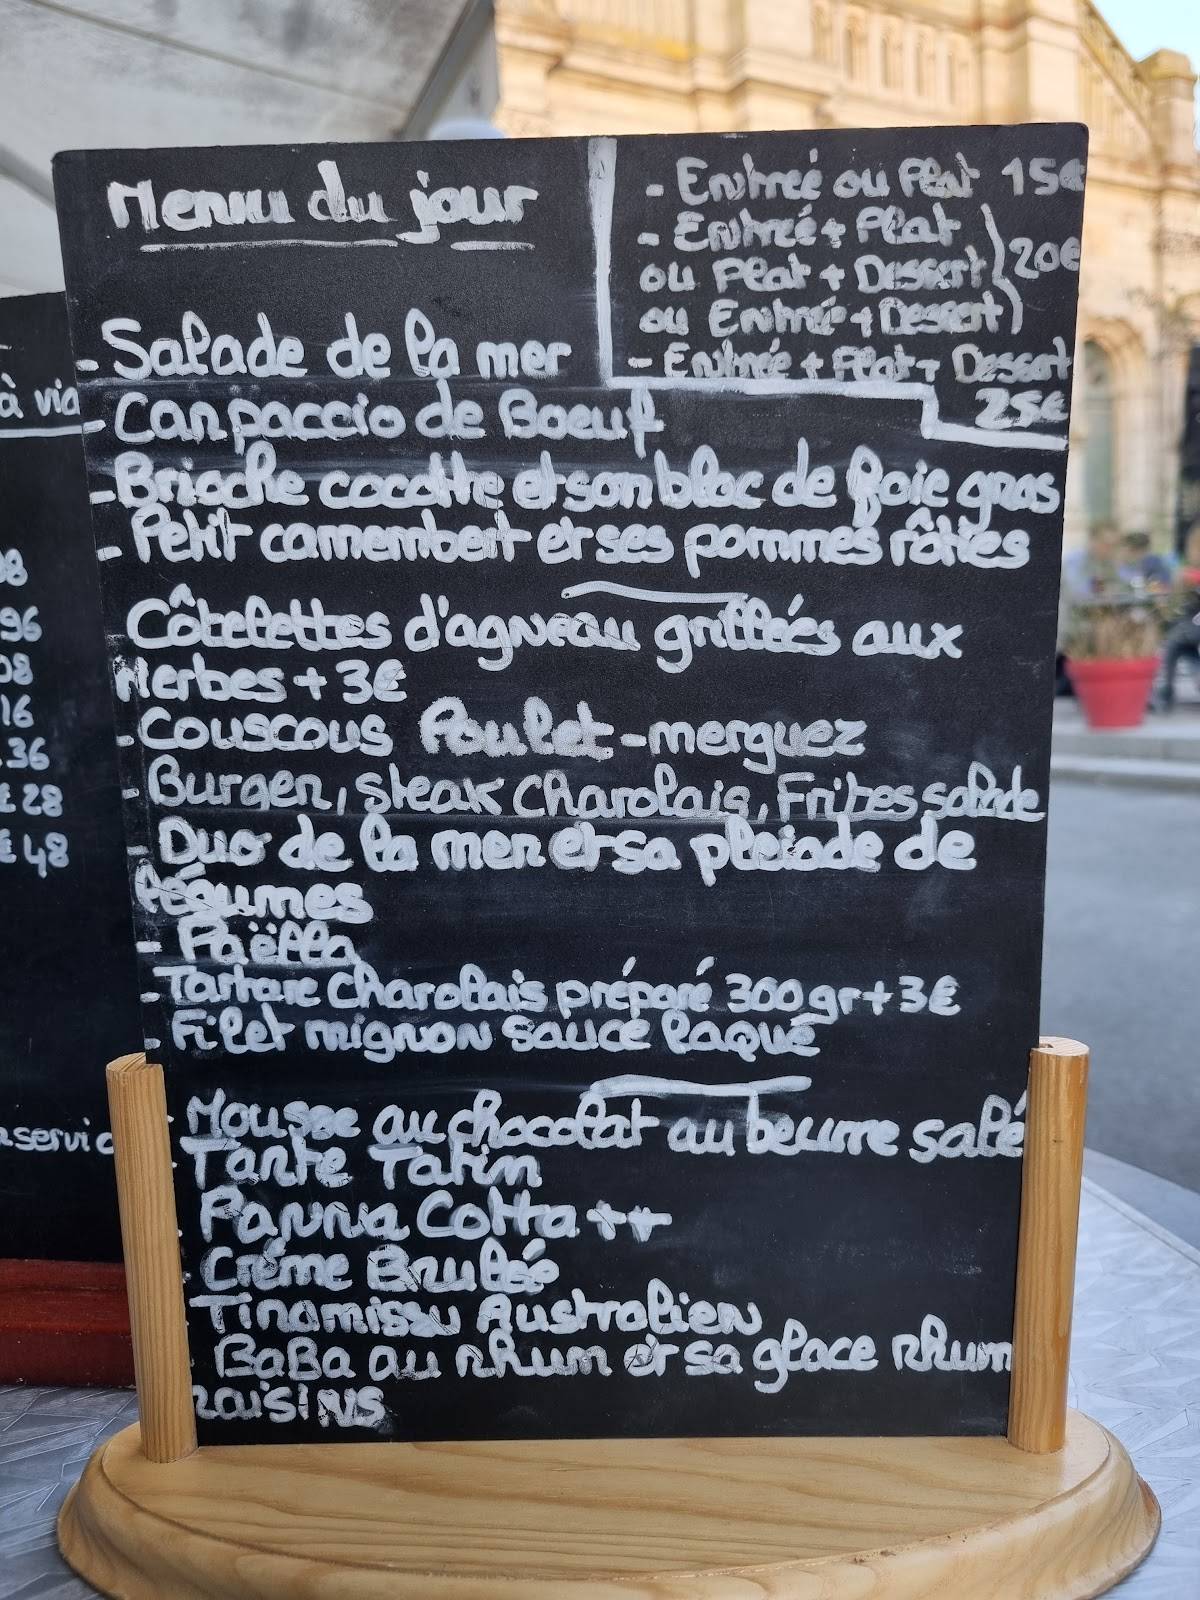 Menu du jour
- Entreé ou Plat 15€
- Entreé + Plat
ou Plat + Dessert 20€
ou Entreé + Dessert
- Entreé + Plat + Dessert
25€
- Salade de la mer
- Carpaccio de Boeuf
- Brioche cocotte et son bloc de foie gras
- Petit camembert et ses pommes rôties
Côtelettes d'agneau grilleés aux
Herbes + 3€
- Couscous Poulet - merguez
- Burger, steak Charolais, Frites salade
- Duo de la mer et sa pleiade de
légumes
- Paëlla
- Tartare Charolais préparé 300gr + 3€
- Filet mignon sauce laqué
- Mousse au chocolat au beurre salé
- Tarte Tatin
- Panna Cotta ++
Créme Bruleé
Tiramissu Australien
BaBa au rhum et sa glace Rhum
raisins
à via
08
96
08
16
.36
€ 28
€ 48
servic